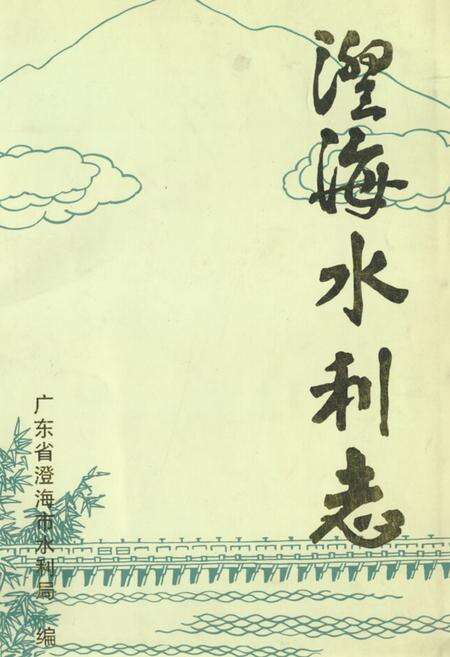 澄海水利志
广东省澄海市水利局 编